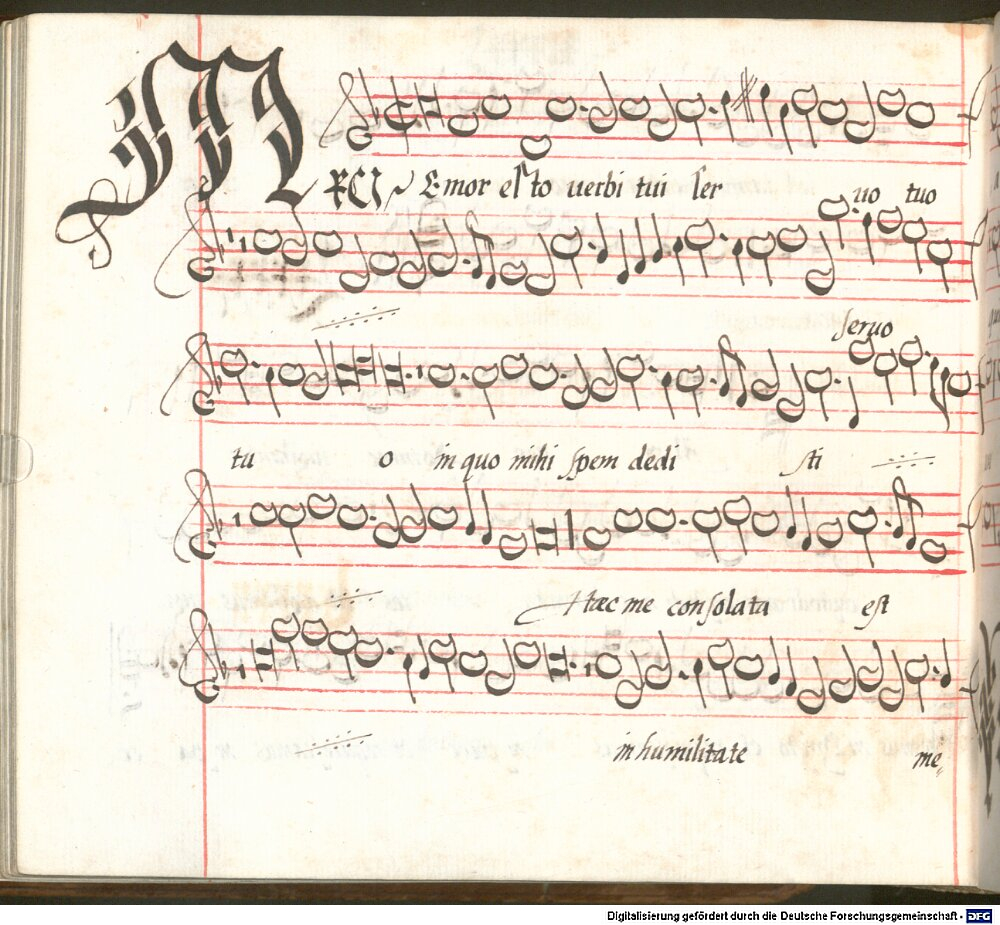 MEmor esto verbi tui ser uo tuo
seruo
tu o in quo mihi spem dedi sti
Hæc me consolata est
in humilitate me
Digitalisierung gefördert durch die Deutsche Forschungsgemeinschaft - DFG